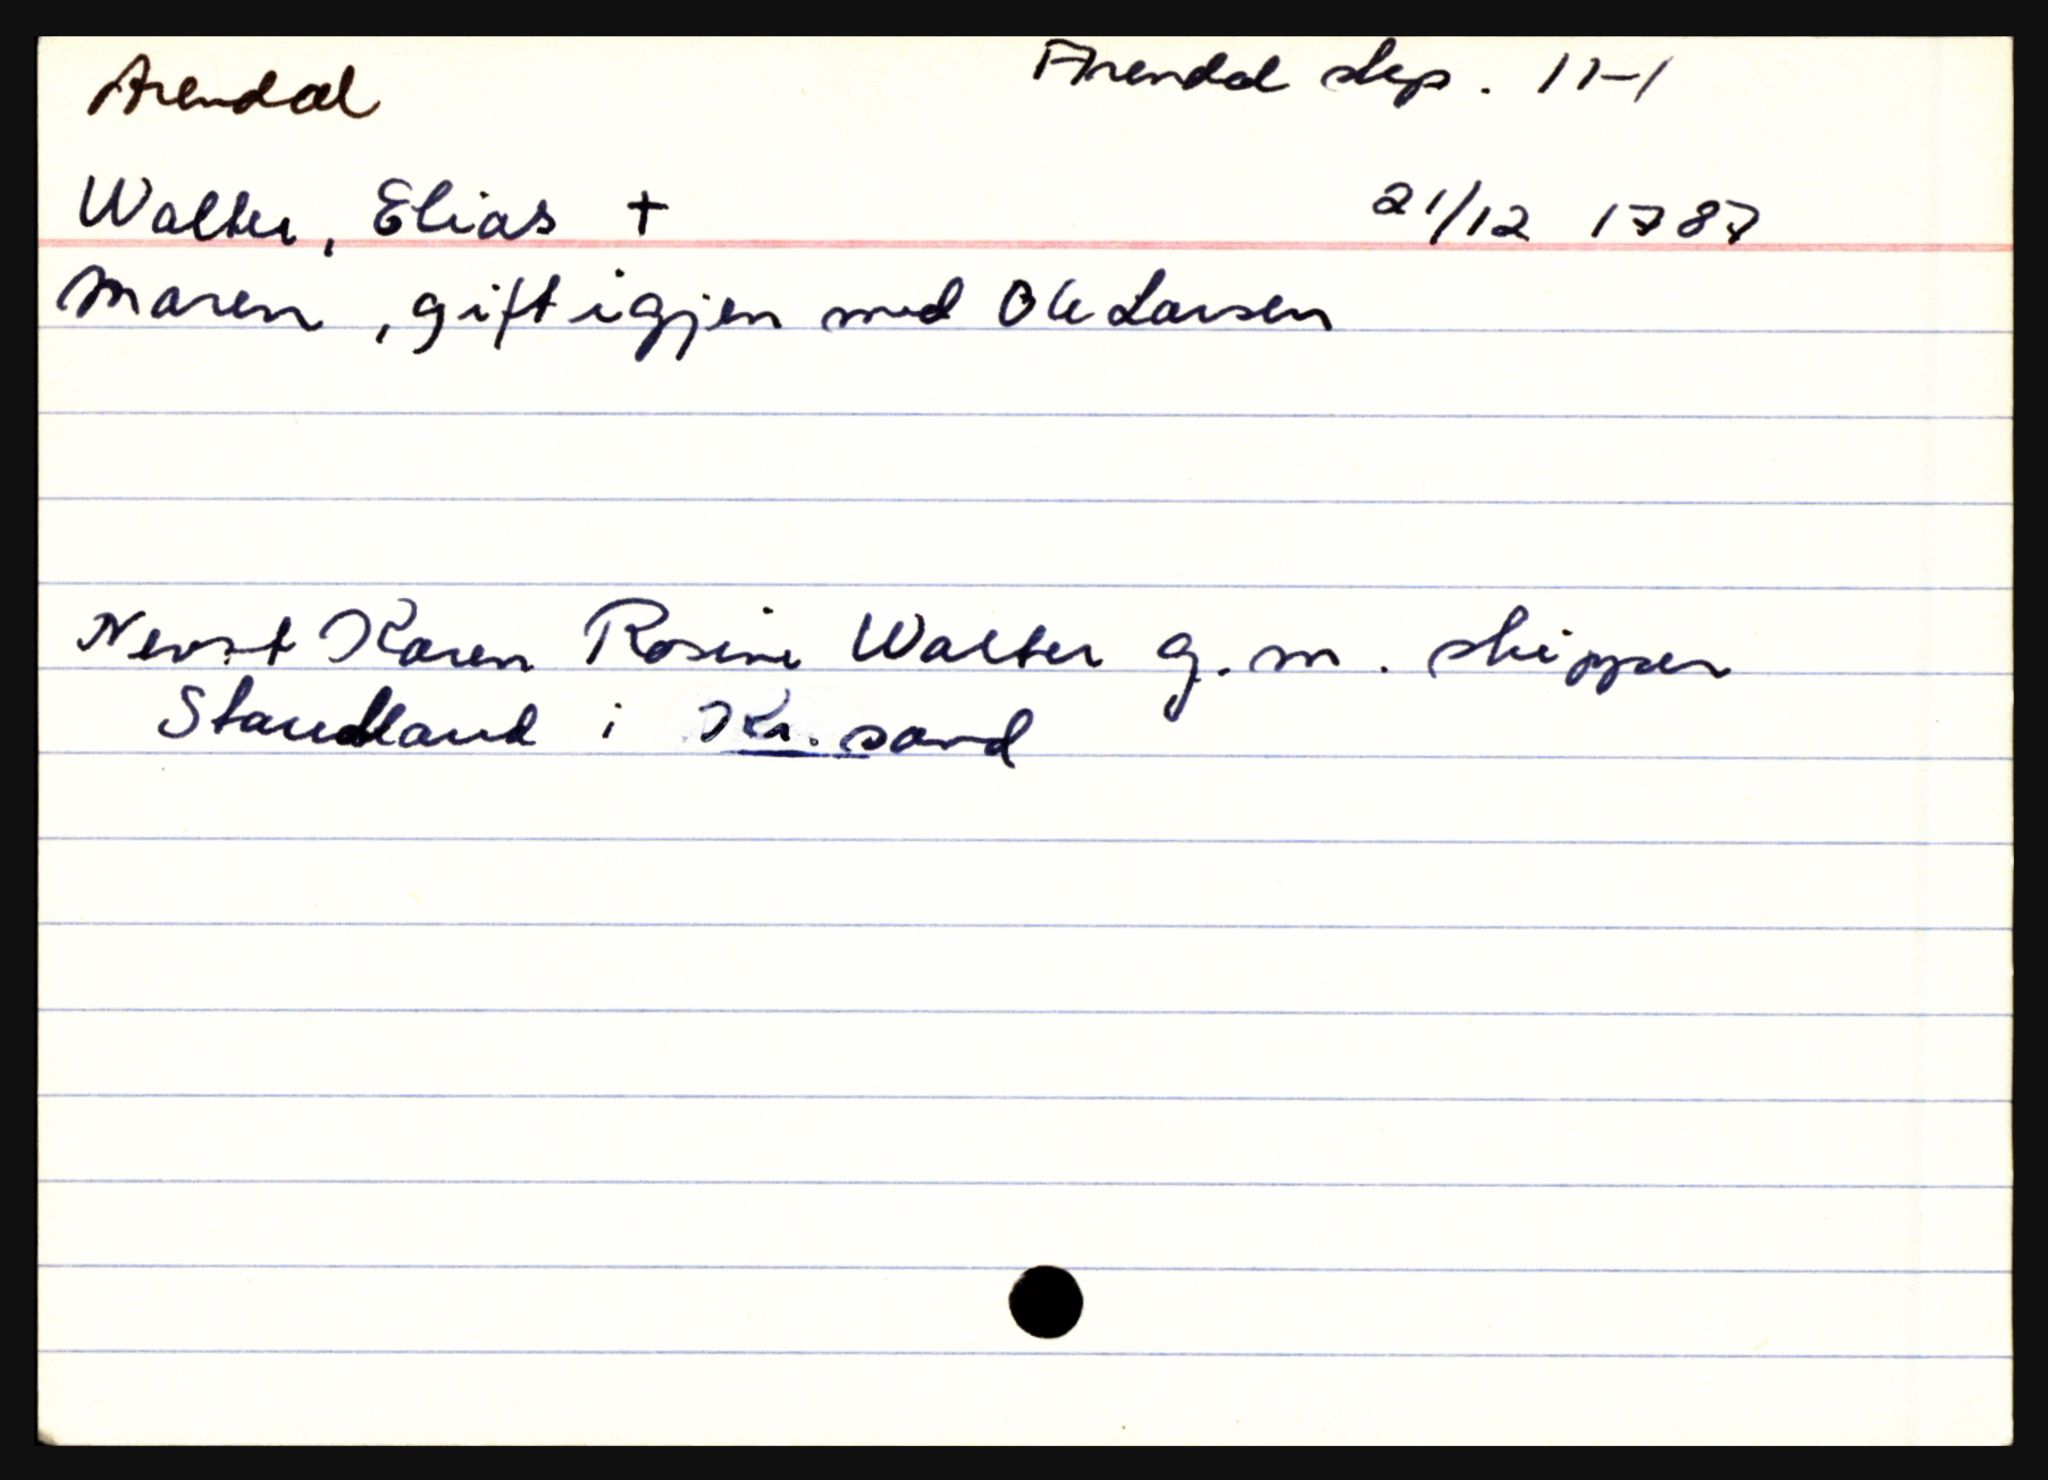 Arendal
Arendal skp. 11-1
Walter, Elias +
21/12 1787
Maren, gift igjen med Ole Larsen
Nevnt Karen Rosine Walter g. m. skipper
i Kr.sand